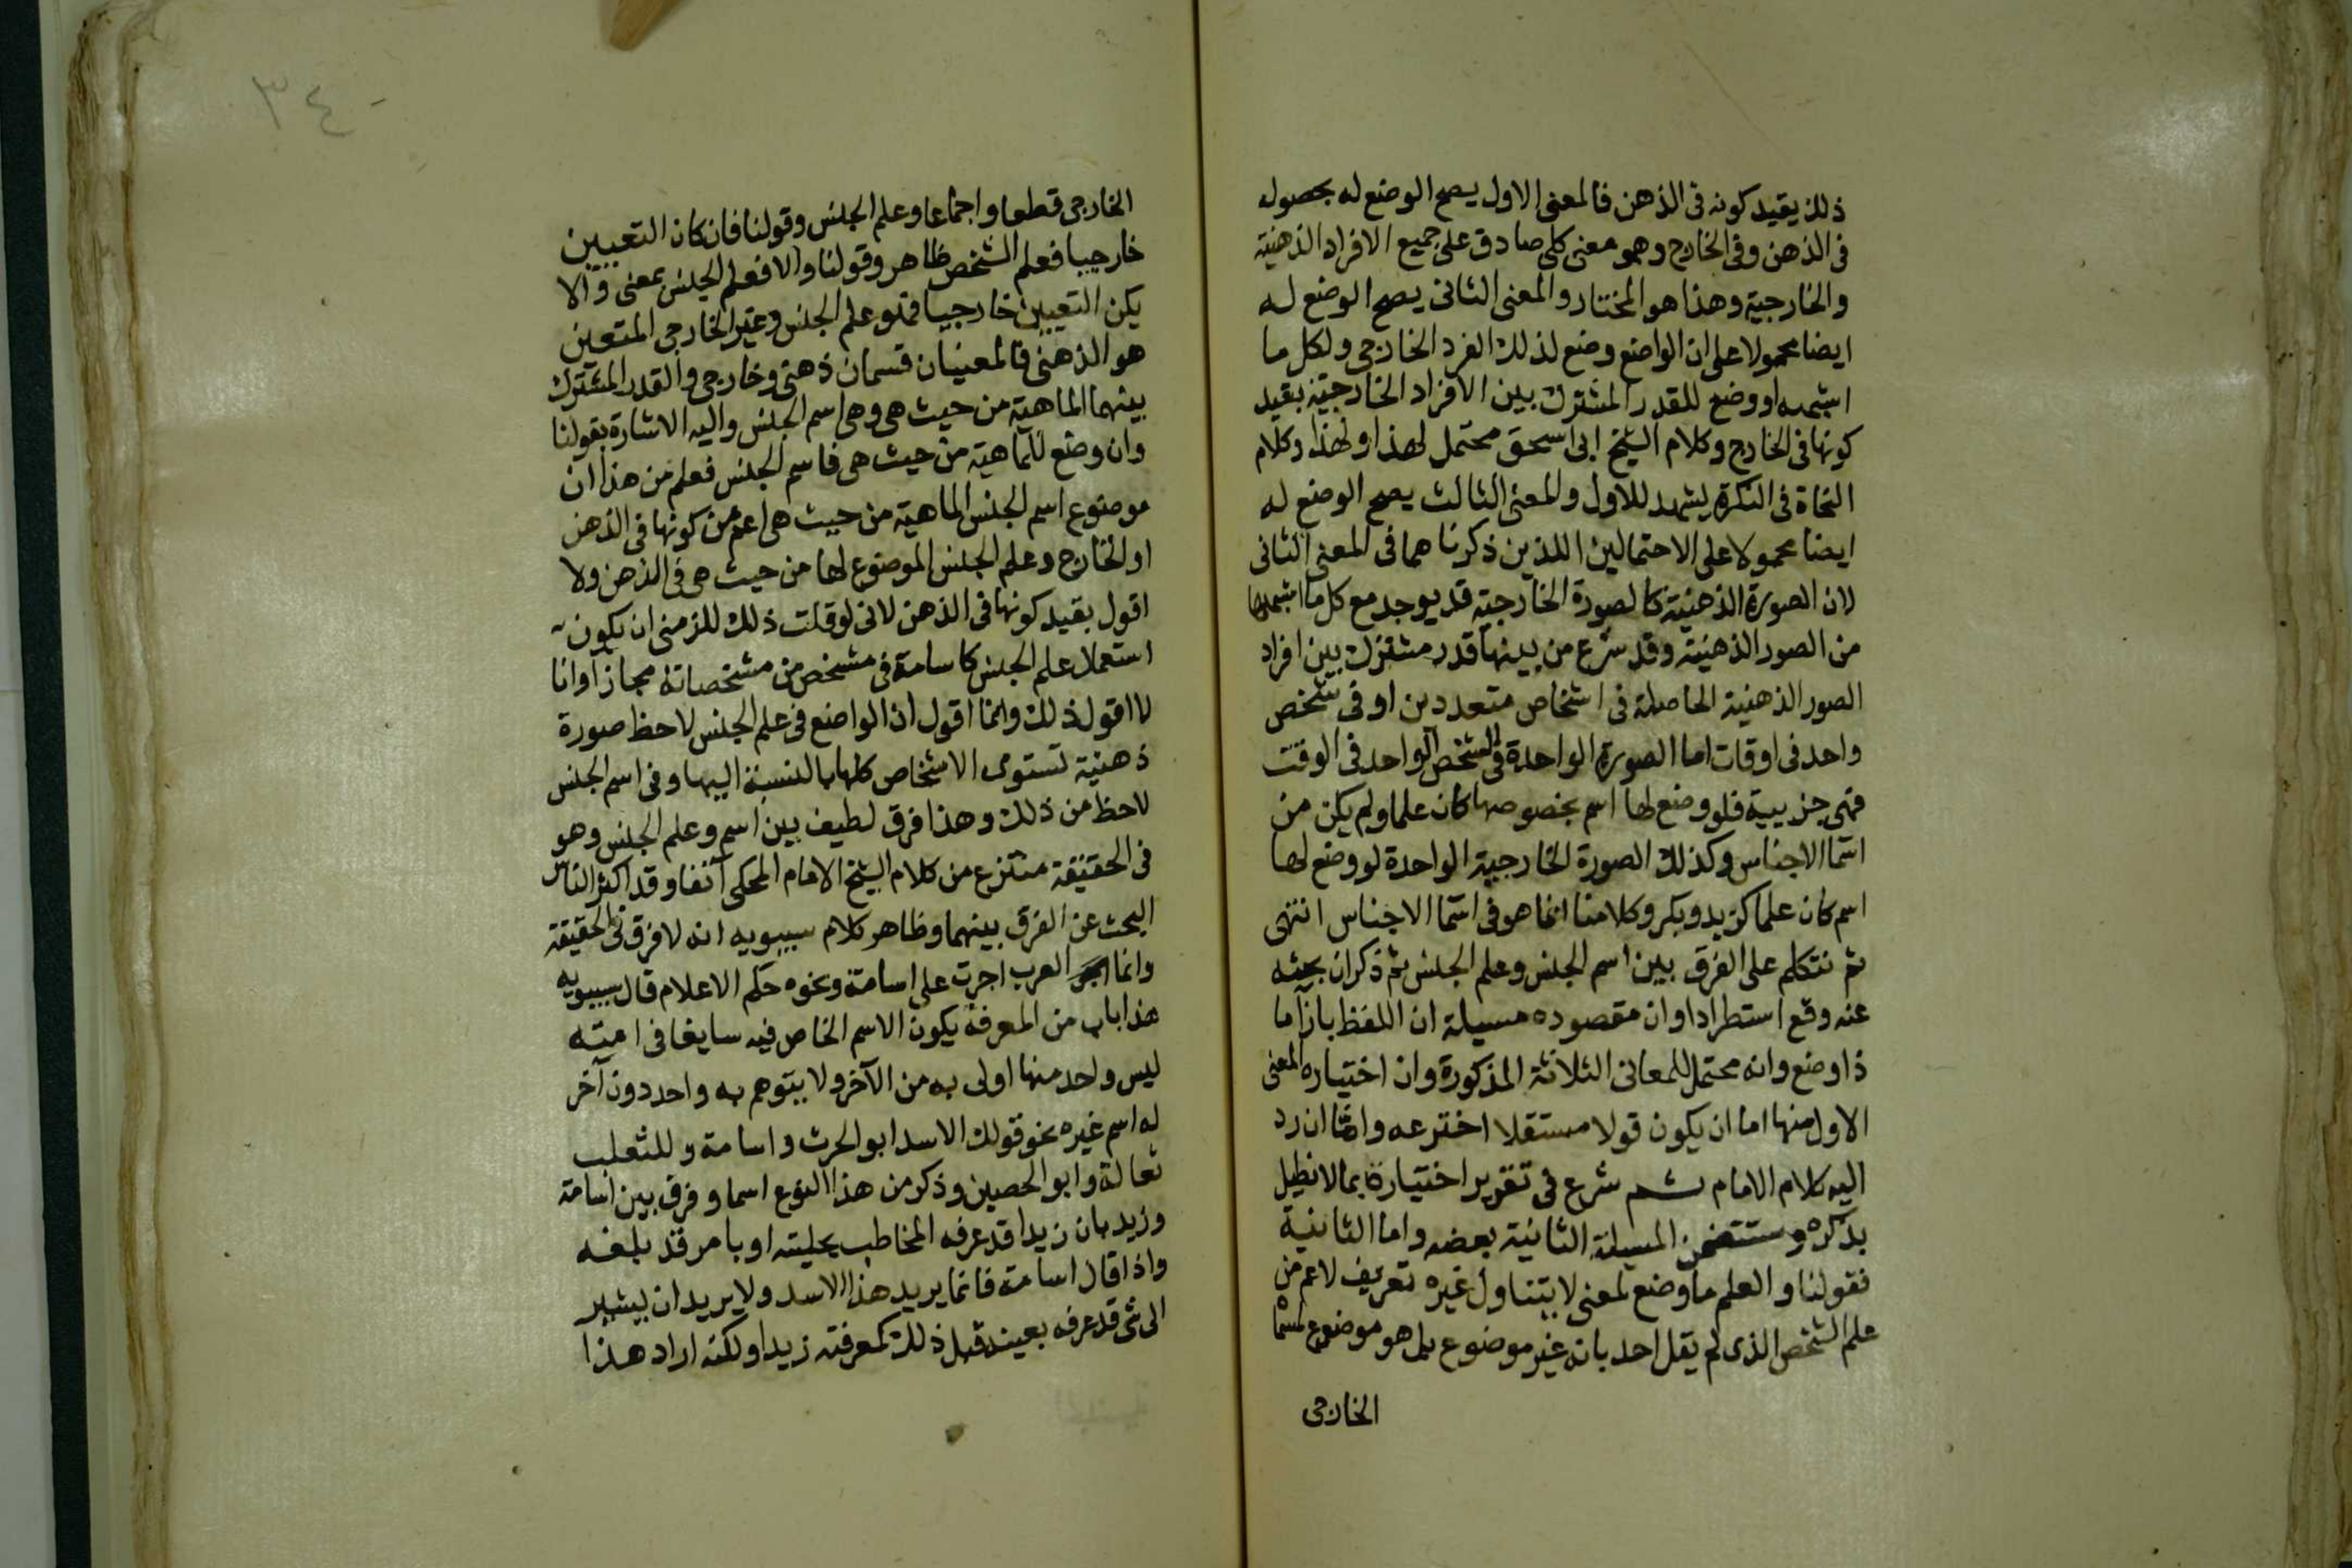 ذلك يقيد كونه فى الذهن فالمعنى الاول يصح الوضع له بحصوله
فى الذهن وفى الخارج وهو معنى كلى صادق على جميع الافراد الذهنية
والخارجية وهذا هو المختار والمعنى الثانى يصح الوضع له
ايضا محمولا على ان الواضع وضع لذلك الفرد الخارجى ولكل ما
اشبهه او وضع للقدر المشترك بين الافراد الخارجية بقيد
كونها فى الخارج وكلام الشيخ ابى اسحق محتمل لهذا ولهذا وكلام
النحاة فى النكرة يشهد للاول والمعنى الثالث يصح الوضع له
ايضا محمولا على الاحتمالين اللذين ذكرناهما فى المعنى الثانى
لان الصورة الذهنية كالصورة الخارجية قد يوجد مع كل ما اشبهها
من الصور الذهنية وقد من بينها قدر مشترك بين افراد
الصور الذهنية الحاصلة فى اشخاص متعددين او فى شخص
واحد فى اوقات اما الصورة الواحدة فى الشخص الواحد فى الوقت
فهى جزيية فلو وضع لها اسم بخصوصها كان علما ولم يكن من
اسما الاجناس وكذلك الصورة الخارجية الواحدة لو وضع لها
اسم كان علما كزيد وبكر وكلامنا انما هو فى اسما الاجناس انتهى
ثم نتكلم على الفرق بين اسم الجنس وعلم الجنس ثم ذكر ان بحثه
عنه وقع استطرادا وان مقصوده مسيلة ان اللفظ بازا ما
ذا وضع وانه محتمل للمعانى الثلاثة المذكورة وان اختياره المعنى
الاول منها اما ان يكون قولا مستقلا اخترعه واما ان رد
اليه كلام الامام ثم شرع فى تقرير اختياره بما لا نطيل
بذكره وستتضمن المسيلة الثانية بعضه واما الثانية
فقولنا والعلم ما وضع لمعنى لا يتناول غيره تعريف لاعم من
علم الشخص الذى لم يقل احد بانه غير موضوع بل هو موضوع
الخارجى
٣٤
الخارجى قطعا واجماعا وعلم الجنس وقولنا فان كان التعيين
خارجيا فعلم الشخص ظاهر وقولنا والا فعلم الجنس بمعنى والا
يكن التعيين خارجيا فهو علم الجنس وغير الخارجى المتعين
هو الذهنى فالمعنيان قسمان ذهنى وخارجى والقدر المشترك
بينهما الماهية من حيث هى وهى اسم الجنس واليه الاشارة بقولنا
وان وضع للماهية من حيث هى فاسم الجنس فعلم من هذا ان
موضوع اسم الجنس الماهية من حيث هى اعم من كونها فى الذهن
او الخارج وعلم الجنس الموضوع لها من حيث هى فى الذهن ولا
اقول بقيد كونها فى الذهن لانى لو قلت ذلك للزمنى ان يكون
استعمال علم الجنس كاسامة فى مشخص من مشخصاته مجازا وانا
لا اقول ذلك وانما اقول ان الواضع فى علم الجنس لاحظ صورة
ذهنية تستوى الاشخاص كلها بالنسبة اليها وفى اسم الجنس
لاحظ من ذلك وهذا فرق لطيف بين اسم وعلم الجنس وهو
فى الحقيقة منتزع من كلام الشيخ الامام المحكى آنفا وقد اكثر الناس
البحث عن الفرق بينهما وظاهر كلام سيبويه انه لا فرق فى الحقيقة
وانما العرب اجرت على اسامة ونحوه حكم الاعلام قال سيبويه
هذا باب من المعرفة يكون الاسم الخاص فيه سايغا فى امته
ليس واحد منها اولى به من الآخر ولا يتوهم به واحد دون آخر
له اسم غيره نحو قولك الاسد ابو الحرث واسامة وللثعلب
ثعالة وابو الحصين وذكر من هذا النوع اسما وفرق بين اسامة
وزيد بان زيدا قد عرفه المخاطب بحليته او بامر قد بلغه
واذا قال اسامة فانما يريد هذا الاسد ولا يريد ان يشير
الى شى قد عرفه بعينه قبل ذلك كمعرفته زيدا ولكنه اراد هذا